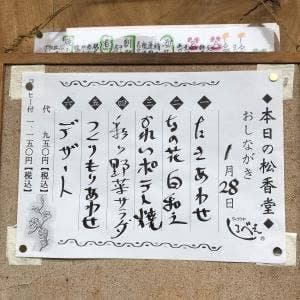 ◆本日の松香堂◆
おしながき
1月28日
しるべえ
一 たきあわせ
二 なの花白和え
三 かれいポテト焼
四 彩り野菜サラダ
五 つくりもりあわせ
六 デザート
代 九五〇円【税込】
コーヒー付 一、一五〇円【税込】